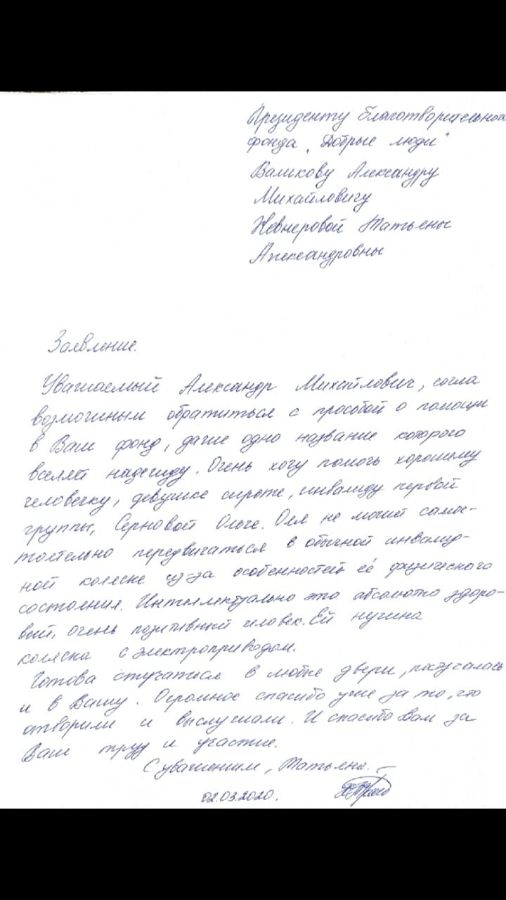 Президенту благотворительно
фонда „Добрые люди"
Валикову Александру
Михайловичу
Невнеровой Татьяны
Александровны
Заявление.
Уважаемый Александр Михайлович, согла
возможным обратиться с просьбой о помощи
в Ваш фонд, даже одно название которого
вселяет надежду. Очень хочу помочь хорошему
человечку, девушке сироте, инвалиду первой
группы, Серновой Ольге. Оля не может самос-
тоятельно передвигаться в обычной инвалид-
ной коляске из-за особенностей её физического
состояния. Интеллектуально это абсолютно здоро-
вый, очень позитивный человек. Ей нужна
коляска с электроприводом.
Готова стучаться в любые двери, постучалась
и в Вашу. Огромное спасибо уже за то, что
отворили и выслушали. И спасибо Вам за
Ваш труд и участие.
С уважением, Татьяна.
02.03.2020.